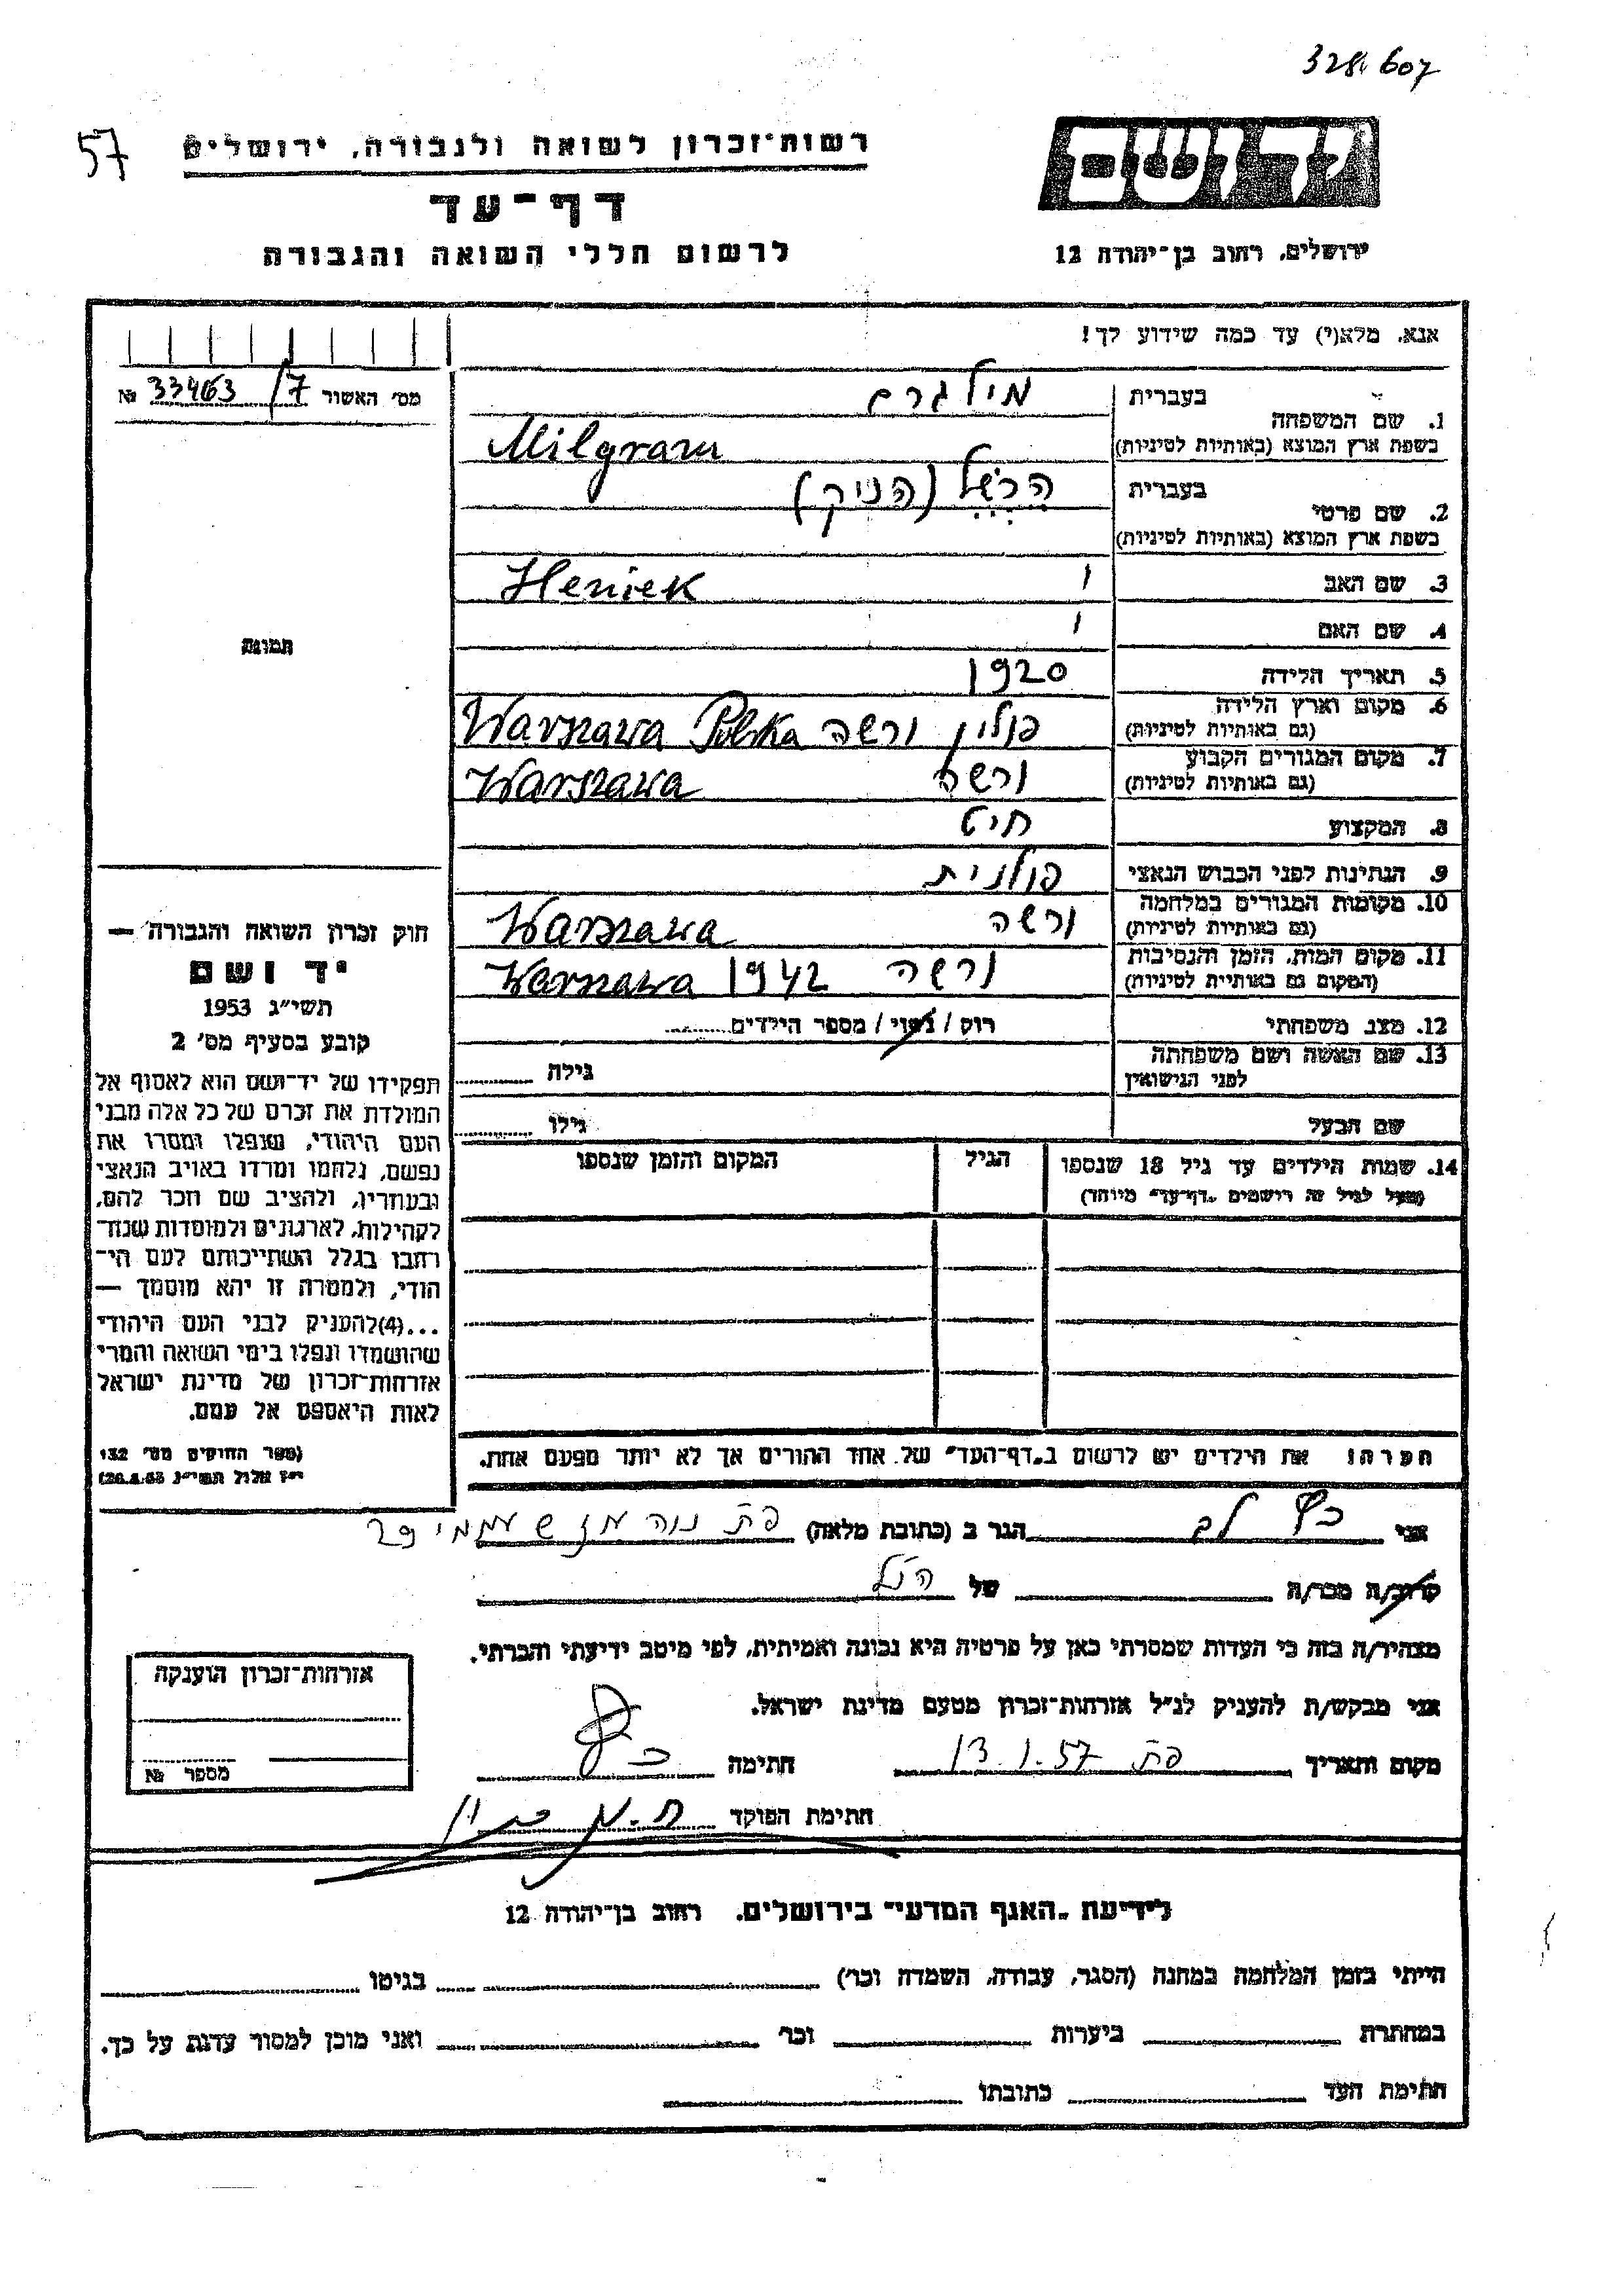 328607
57
רשות־זכרון לשואה ולגבורה, ירושלים
יד ושם
דף־עד
לרשום חללי השואה והגבורה
ירושלים, רחוב בן־יהודה 12
אנא, מלא(י) עד כמה שידוע לך!
מס' האשור 33463/7 №
בעברית מילגרם
1. שם המשפחה
בשפת ארץ המוצא (באותיות לטיניות) Milgram
בעברית הרשל (הניק)
2. שם פרטי
בשפת ארץ המוצא (באותיות לטיניות)
3. שם האב Heniek
4. שם האם
5. תאריך הלידה 1920
6. מקום וארץ הלידה (גם באותיות לטיניות) פולין ורשה Warszawa Polska
7. מקום המגורים הקבוע (גם באותיות לטיניות) ורשה Warszawa
8. המקצוע חיט
9. הנתינות לפני הכבוש הנאצי פולנית
10. מקומות המגורים במלחמה (גם באותיות לטיניות) ורשה Warszawa
11. מקום המות, הזמן והנסיבות (המקום גם באותיות לטיניות) ורשה 1942 Warszawa
12. מצב משפחתי רוק / נשוי / מספר הילדים
13. שם האשה ושם משפחתה לפני הנישואין גילה
שם הבעל גילו
14. שמות הילדים עד גיל 18 שנספו
(מעל לגיל זה רושמים "דף־עד" מיוחד)
הגיל
המקום והזמן שנספו
תמונה
חוק זכרון השואה והגבורה —
יד ושם
תשי"ג 1953
קובע בסעיף מס' 2
תפקידו של יד־ושם הוא לאסוף אל
המולדת את זכרם של כל אלה מבני
העם היהודי, שנפלו ומסרו את
נפשם, נלחמו ומרדו באויב הנאצי
ובעוזריו, ולהציב שם וזכר להם,
לקהילות, לארגונים ולמוסדות שנח־
רבו בגלל השתייכותם לעם הי־
הודי, ולמטרה זו יהא מוסמך —
...(4)להעניק לבני העם היהודי
שהושמדו ונפלו בימי השואה והמרי
אזרחות־זכרון של מדינת ישראל
לאות היאספם אל עמם.
(ספר החוקים מס' 132
י"ז אלול תשי"ג 28.8.53)
הערה: את הילדים יש לרשום ב"דף־העד" של אחד ההורים אך לא יותר מפעם אחת.
אני כץ לב הגר ב (כתובת מלאה) פת נוה עוז שעממי 29
קרוב/ה מכר/ה של הנ"ל
מצהיר/ה בזה כי העדות שמסרתי כאן על פרטיה היא נכונה ואמיתית, לפי מיטב ידיעתי והכרתי.
אני מבקש/ת להעניק לנ"ל אזרחות־זכרון מטעם מדינת ישראל.
מקום ותאריך פת 13.1.57 חתימה
חתימת הפוקד
אזרחות־זכרון הוענקה
מספר №
לידיעת "האגף המדעי" בירושלים, רחוב בן־יהודה 12
הייתי בזמן המלחמה במחנה (הסגר, עבודה, השמדה וכו') בגיטו
במחתרת ביערות וכו' ואני מוכן למסור עדות על כך.
חתימת העד כתובתו